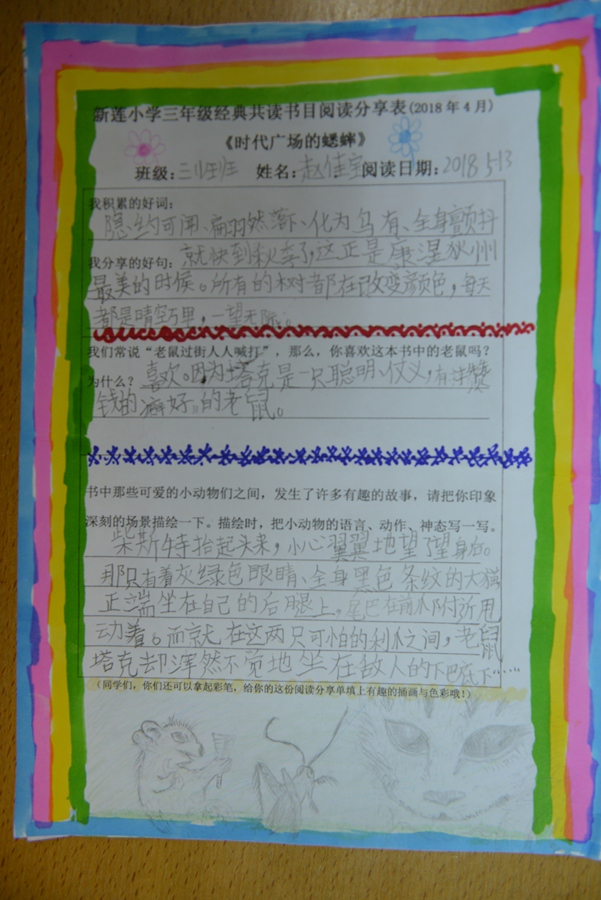 新莲小学三年级经典共读书目阅读分享表(2018年4月)
《时代广场的蟋蟀》
班级: 姓名:赵佳 阅读日期:2018 5 13
我积累的好词:
隐约可闻、翩然落下、化为乌有、全身颤抖
我分享的好句:就快到秋季了,这正是康涅狄州
最美的时候。所有的树都在改变颜色,每天
都是晴空万里,一望无际。
我们常说“老鼠过街人人喊打”,那么,你喜欢这本书中的老鼠吗?
为什么?喜欢。因为塔克是一只聪明、仗义,有注赞
钱的癖好的老鼠。
书中那些可爱的小动物们之间,发生了许多有趣的故事,请把你印象
深刻的场景描绘一下。描绘时,把小动物的语言、动作、神态写一写。
柴斯特抬起头来,小心翼翼地望了望身后。
那只有着灰绿色眼睛、全身黑色条纹的大猫
正端坐在自己的后腿上,尾巴在前爪附近甩
动着。而就在这两只可怕的利爪之间,老鼠
塔克却浑然不觉地坐在敌人的下巴底下……
(同学们,你们还可以拿起彩笔,给你的这份阅读分享单填上有趣的插画与色彩哦!)